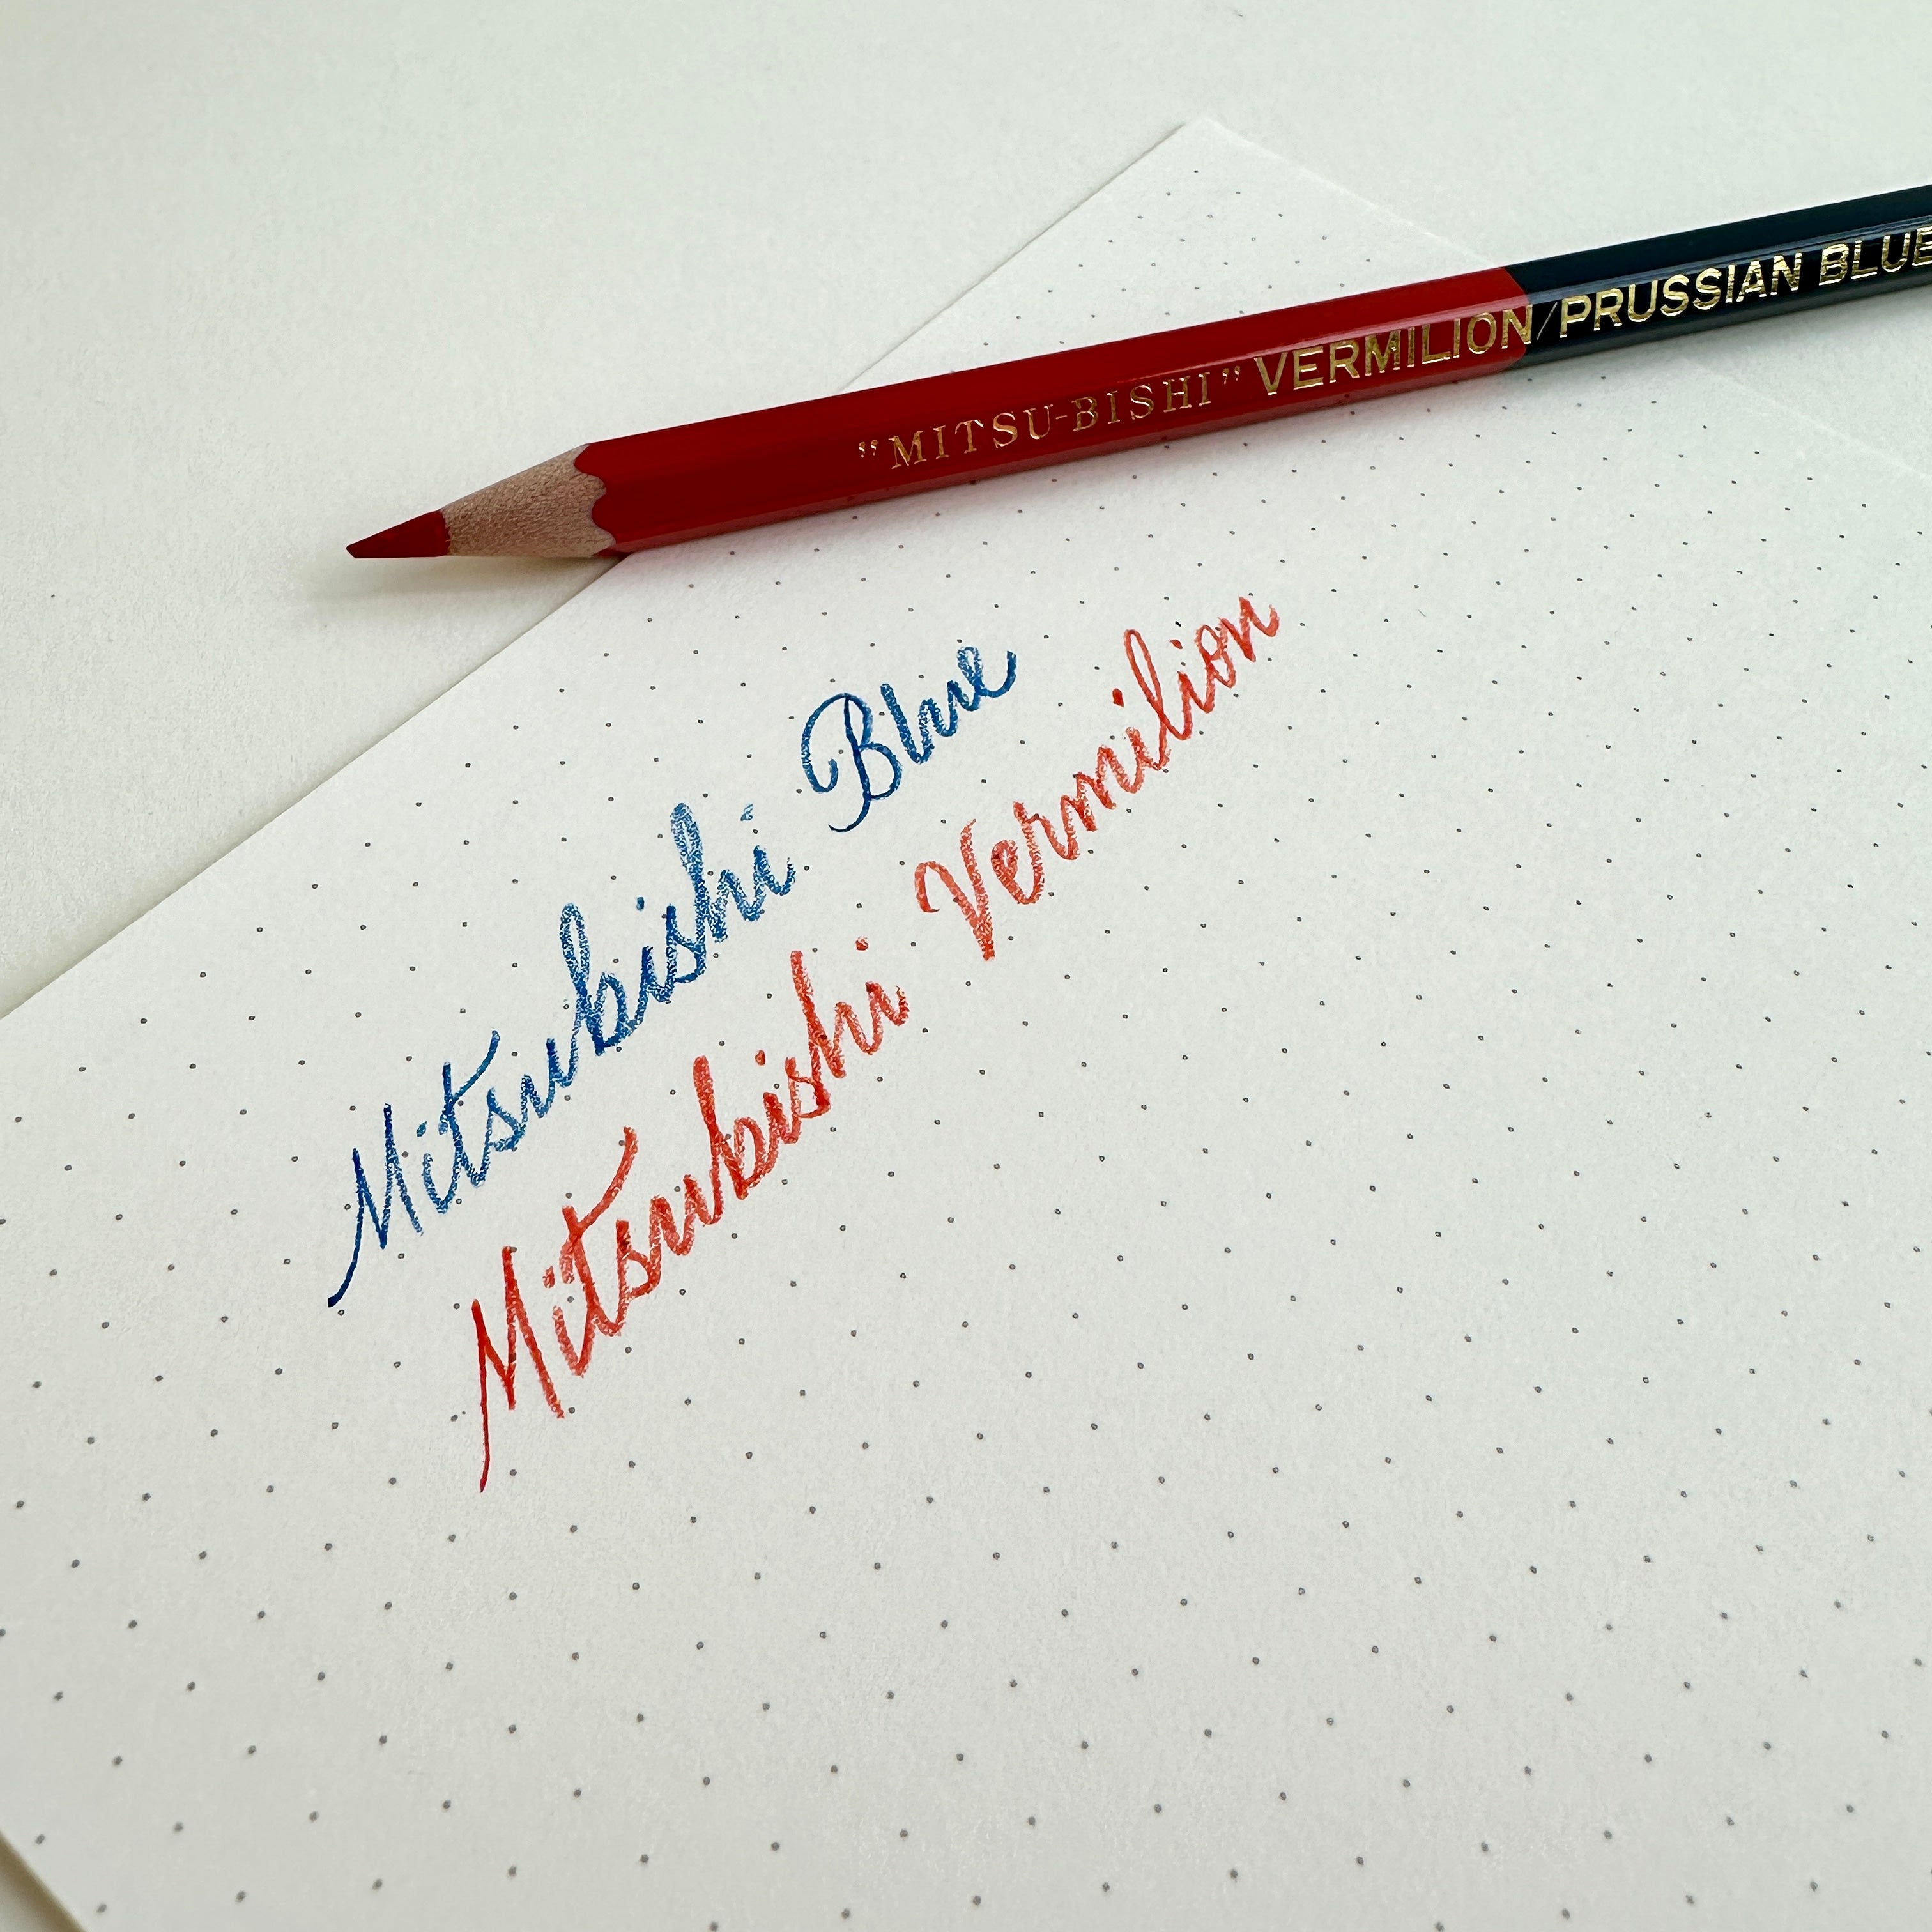 "MITSU-BISHI" VERMILION/PRUSSIAN BLUE
Mitsubishi Blue
Mitsubishi Vermilion